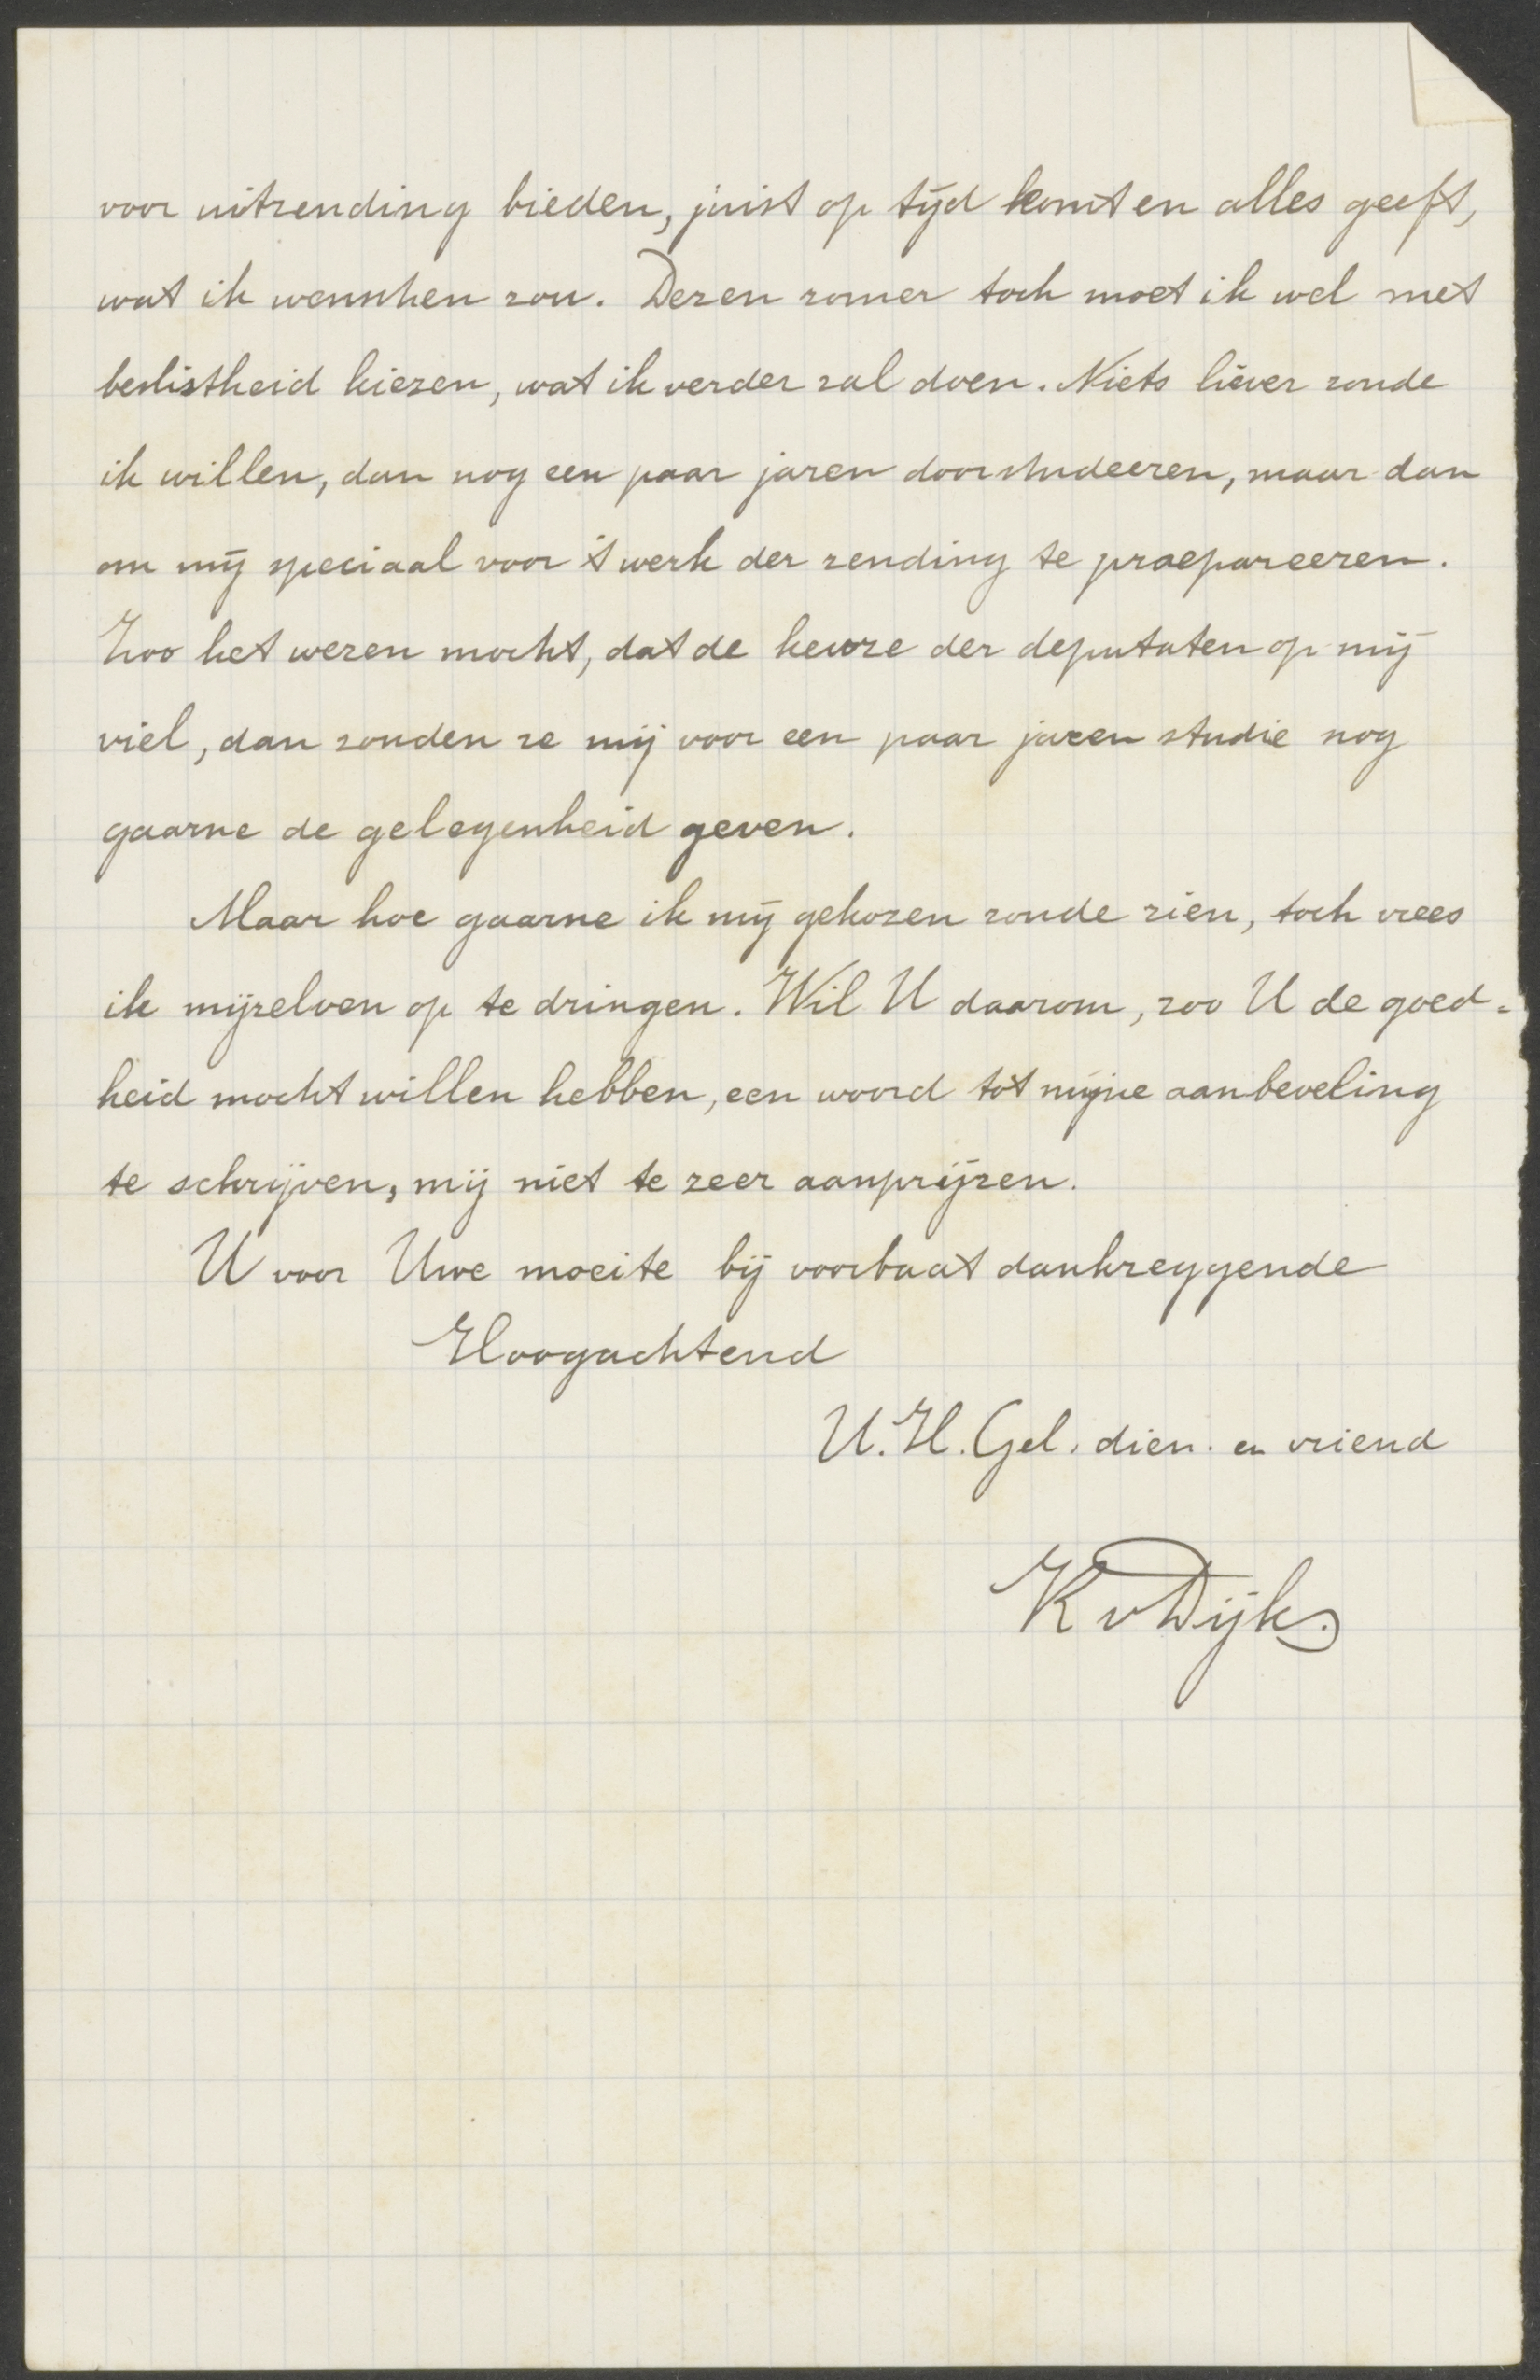 voor uitzending bieden, juist op tijd komt en alles geeft,
wat ik wenschen zou. Dezen zomer toch moet ik wel met
beslistheid kiezen, wat ik verder zal doen. Niets liever zoude
ik willen, dan nog een paar jaren doorstudeeren, maar dan
om mij speciaal voor 't werk der zending te praepareeren.
Zoo het wezen mocht, dat de keuze der deputaten op mij
viel, dan zouden ze mij voor een paar jaren studie nog
gaarne de gelegenheid geven.
Maar hoe gaarne ik mij gekozen zoude zien, toch vrees
ik mijzelven op te dringen. Wil U daarom, zoo U de goed-
heid mocht willen hebben, een woord tot mijne aanbeveling
te schrijven, mij niet te zeer aanprijzen.
U voor Uwe moeite bij voorbaat dankzeggende
Hoogachtend
U. H. Gel. dien. en vriend
K v Dijk.